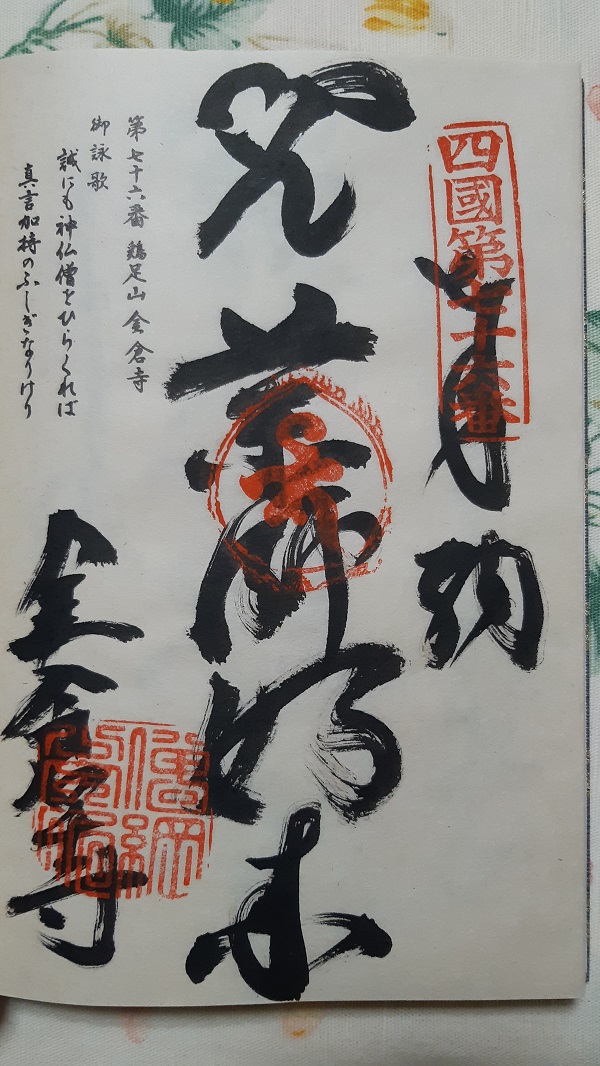 四國第七十六番
奉納
薬師如来
第七十六番 鶏足山 金倉寺
御詠歌
誠にも神仏僧をひらくれば
真言加持のふしぎなりけり
金倉寺